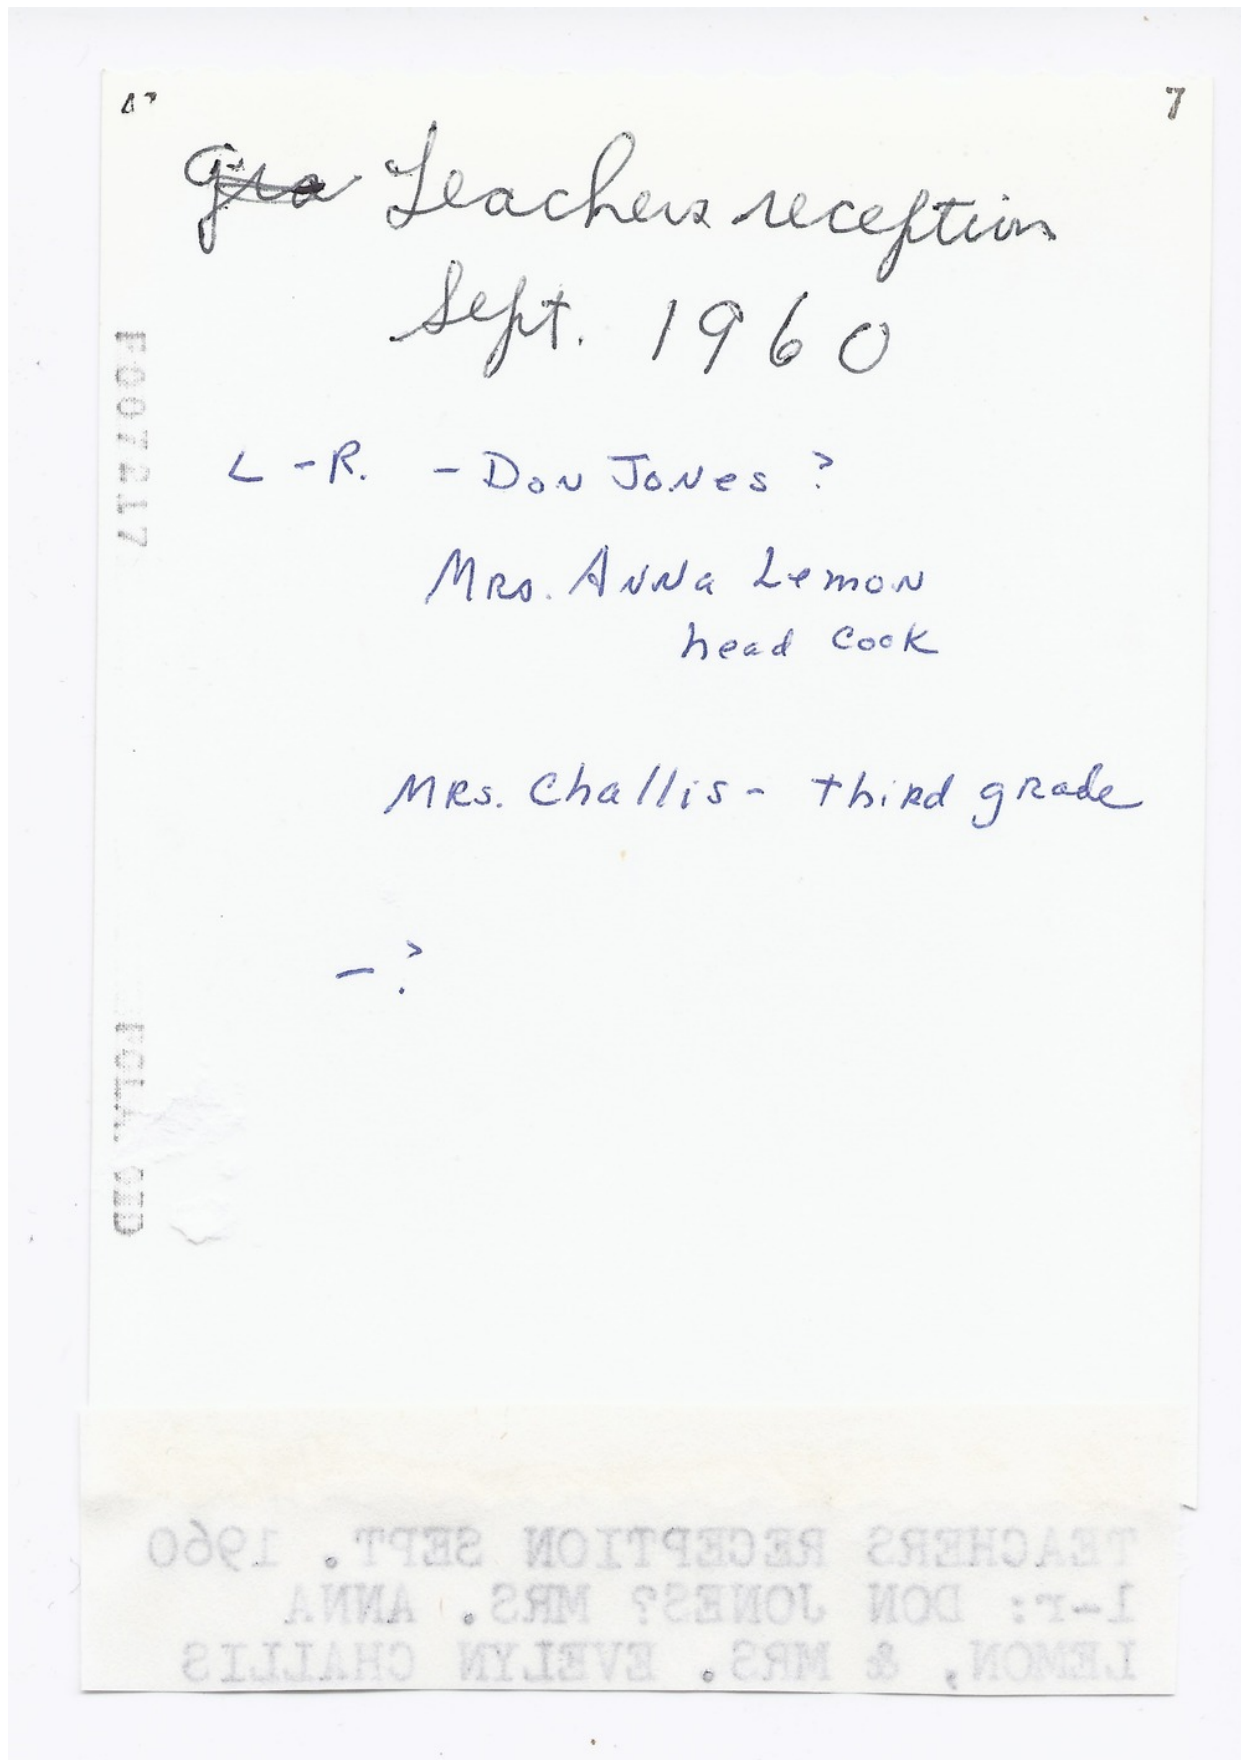 7
Teachers reception
Sept. 1960
L-R. - Don Jones ?
Mrs. Anna Lemon
head cook
Mrs. Challis - third grade
- ?
F007217
TEACHERS RECEPTION SEPT. 1960
l-r: DON JONES? MRS. ANNA
LEMON, & MRS. EVELYN CHALLIS